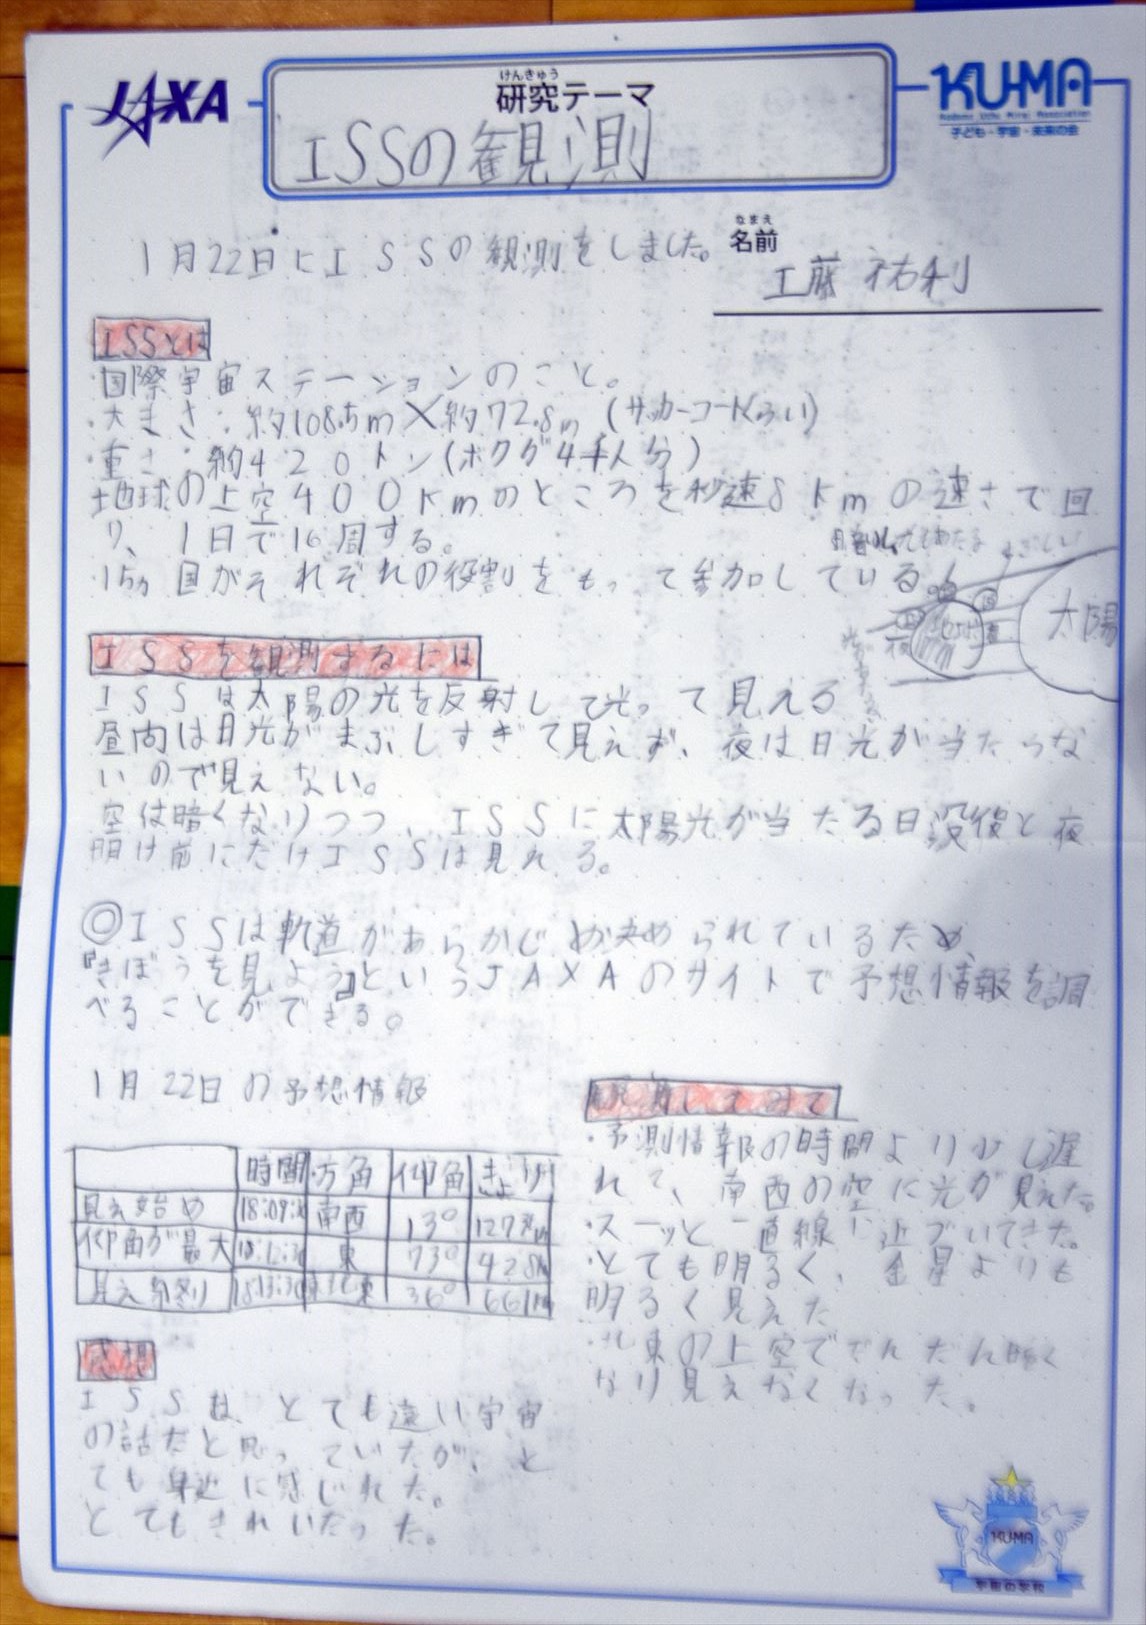 JAXA
けんきゅう
研究テーマ
ISSの観測
KU-MA
Kodomo Uchu Mirai Association
子ども・宇宙・未来の会
1月22日にISSの観測をしました。
なまえ
名前
工藤 祐利
ISSとは
・国際宇宙ステーションのこと。
・大きさ:約108.5m×約72.8m(サッカーコートくらい)
・重さ:約420トン(ボクグ4千人分)
地球の上空400kmのところを秒速8kmの速さで回
り、1日で16周する。
・15ヵ国がそれぞれの役割をもって参加している!
太陽
夜
ISSを観測するには
ISSは太陽の光を反射して光って見える
昼間は日光がまぶしすぎて見えず、夜は日光が当たらな
いので見えない。
空は暗くなりつつ、ISSに太陽光が当たる日没後と夜
明け前にだけISSは見れる。
◎ISSは軌道があらかじめ決められているため、
『きぼうを見よう』というJAXAのサイトで予想情報を調
べることができる。
1月22日の予想情報
時間 方角 仰角 きょり
見え始め 南西 13°
仰角が最大 東 73°
見え終り 36°
観測してみて
・予測情報の時間より少し遅
れて、南西の空に光が見えた。
・スーッと一直線に近づいてきた。
・とても明るく、金星よりも
明るく見えた
・北東の上空でだんだん暗く
なり見えなくなった。
感想
ISSは、とても遠い宇宙
の話だと思っていたが、と
ても身近に感じれた。
とてもきれいだった。
KU-MA
宇宙の学校